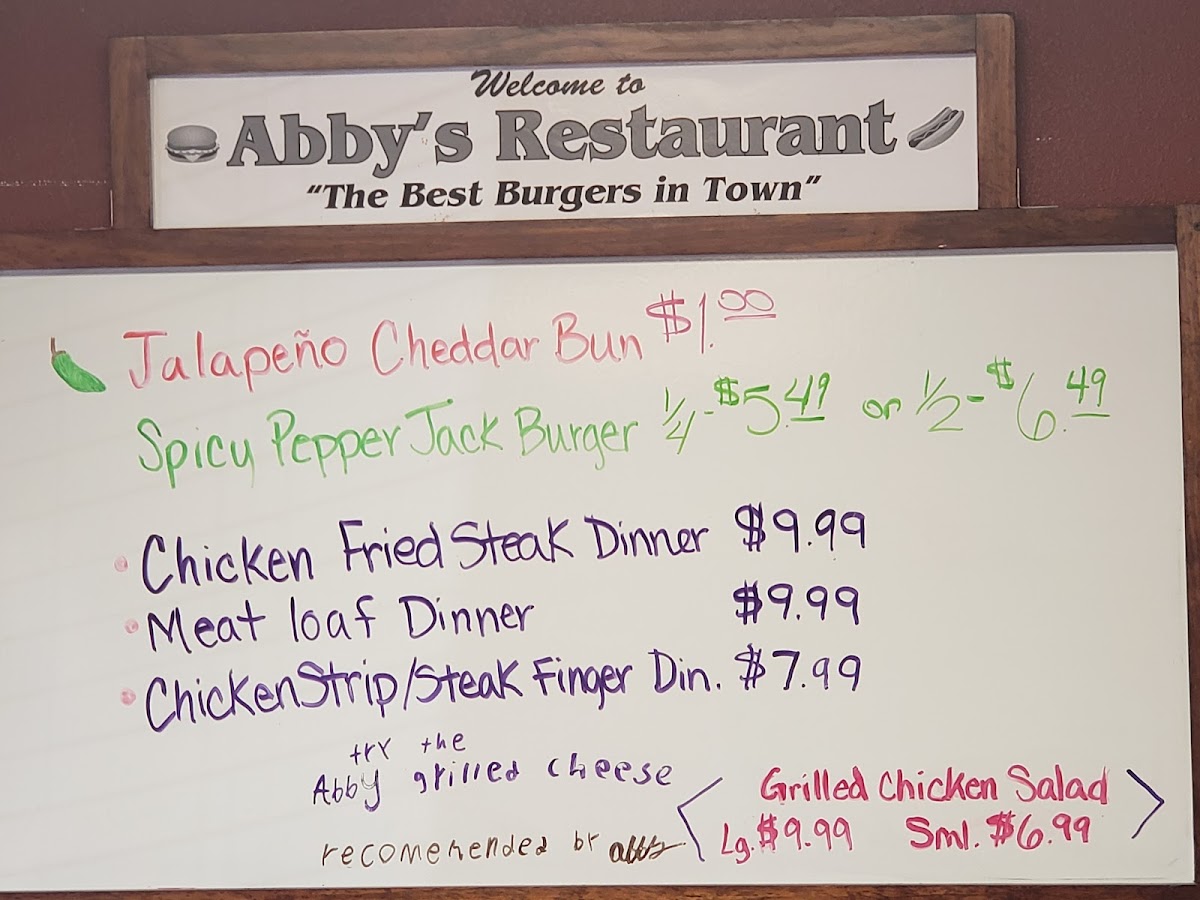 Welcome to
Abby's Restaurant
"The Best Burgers in Town"
Jalapeño Cheddar Bun $1.00
Spicy Pepper Jack Burger 1/4-$5.49 or 1/2-$6.49
Chicken Fried Steak Dinner $9.99
Meat loaf Dinner $9.99
Chicken Strip/Steak Finger Din. $7.99
try the
Abby grilled cheese
recomenended by abby
Grilled Chicken Salad
Lg. $9.99 Sml. $6.99